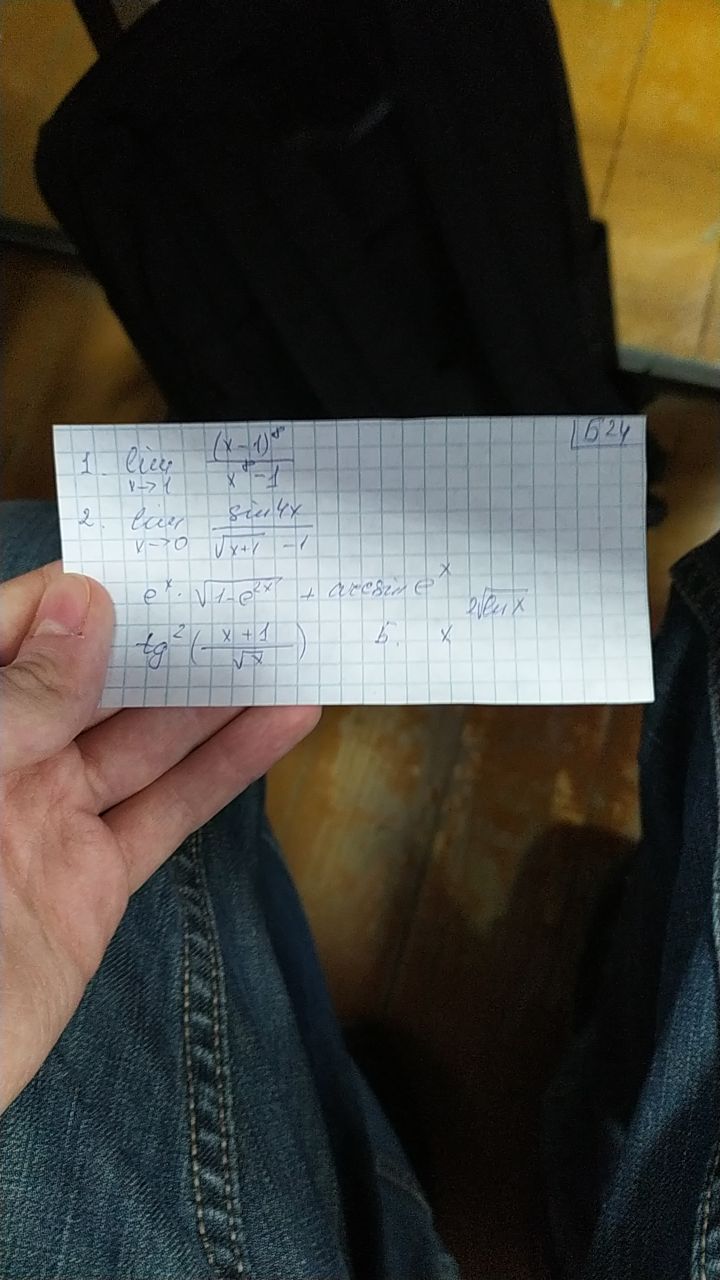 Б24
1. lim x→1 (x-1)⁸ / x⁸-1
2. lim x→0 sin4x / √x+1 -1
eˣ·√1-e²ˣ + arcsin eˣ
tg² (x+1 / √x) 5. x^2√ln x